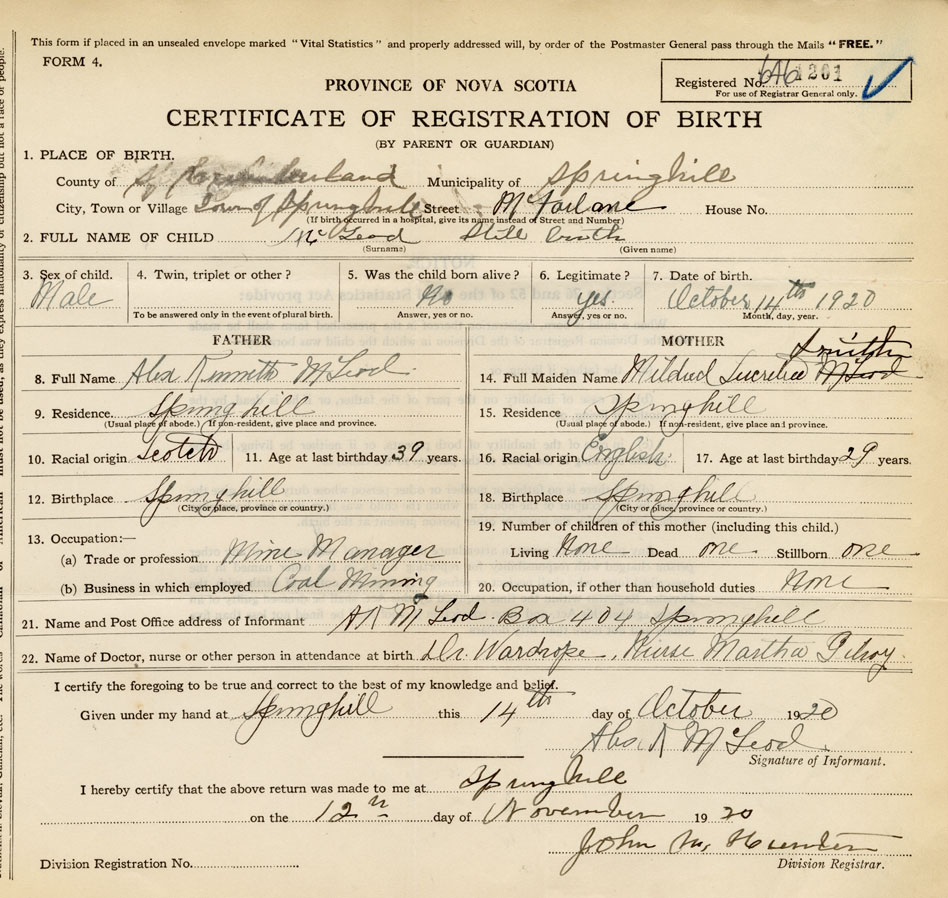 This form if placed in an unsealed envelope marked "Vital Statistics" and properly addressed will, by order of the Postmaster General pass through the Mails "FREE."
FORM 4.
Registered No. 1201
For use of Registrar General only.
PROVINCE OF NOVA SCOTIA
CERTIFICATE OF REGISTRATION OF BIRTH
(BY PARENT OR GUARDIAN)
1. PLACE OF BIRTH.
County of Cumberland Municipality of Springhill
City, Town or Village Town of Springhill Street McFarlane House No.
(If birth occurred in a hospital, give its name instead of Street and Number)
2. FULL NAME OF CHILD McLeod Still birth
(Surname) (Given name)
3. Sex of child. 4. Twin, triplet or other? 5. Was the child born alive? 6. Legitimate? 7. Date of birth.
Male No yes. October 14th 1920
To be answered only in the event of plural birth. Answer, yes or no. Answer, yes or no. Month, day, year.
FATHER MOTHER
8. Full Name Alex Kenneth McLeod 14. Full Maiden Name Mildred Lucretia McLeod Smith
9. Residence. Springhill 15. Residence Springhill
(Usual place of abode.) (If non-resident, give place and province. (Usual place of abode.) (If non-resident, give place and province.
10. Racial origin Scotch 11. Age at last birthday 39 years. 16. Racial origin English 17. Age at last birthday 29 years.
12. Birthplace Springhill 18. Birthplace Springhill
(City or place, province or country.) (City or place, province or country.)
13. Occupation:— 19. Number of children of this mother (including this child.)
(a) Trade or profession. Mine Manager Living None Dead one Stillborn one
(b) Business in which employed. Coal Mining 20. Occupation, if other than household duties None
21. Name and Post Office address of Informant A K McLeod Box 404 Springhill
22. Name of Doctor, nurse or other person in attendance at birth Dr. Wardrope, Nurse Martha Gilroy.
I certify the foregoing to be true and correct to the best of my knowledge and belief.
Given under my hand at Springhill this 14th day of October 1920
Alex K McLeod
Signature of Informant.
I hereby certify that the above return was made to me at Springhill
on the 12th day of November 1920
John M. Hunter
Division Registration No. Division Registrar.